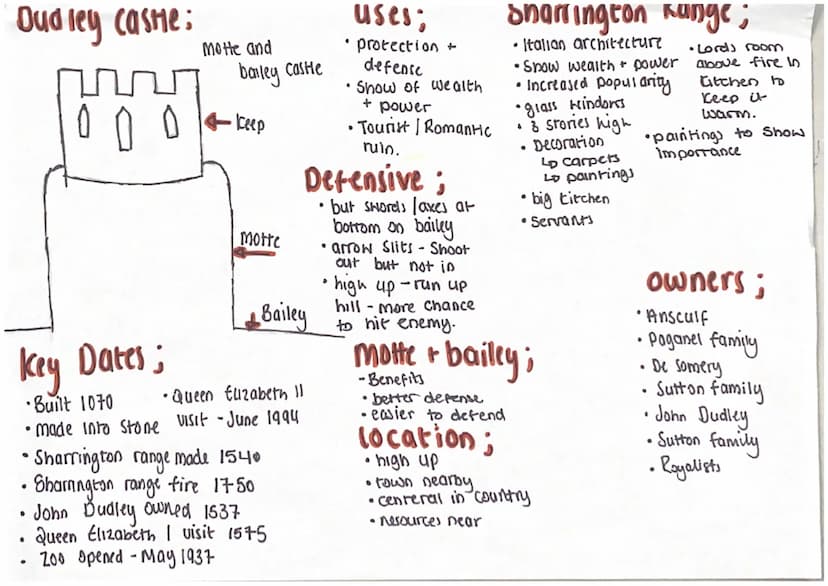 Dudley Castle;
Motte and
bailey castle
Keep
Motte
Bailey
Key Dates;
• Built 1070
• made into Stone
• Sharrington range made 1540
• Sharrington range fire 1750
• John Dudley owned 1537
• Queen Elizabeth I visit 1575
• Zoo opened - May 1937
• Queen Elizabeth II
visit - June 1994
uses;
• protection +
defence
• Show of wealth
+ power
• Tourist / Romantic
ruin.
Defensive;
• but swords/axes at
bottom on bailey
• arrow slits - Shoot
out but not in
• high up - run up
hill - more chance
to hit enemy.
Motte + bailey;
- Benefits
• better defense
• easier to defend
location;
• high up
• town nearby
• centeral in country
• resources near
Sharrington Range;
• Italian architecture
• Show wealth + power
• Increased popularity
• glass windows
• 3 stories high
• Decoration
↳ carpets
↳ paintings
• big kitchen
• servants
• Lords room
above fire in
kitchen to
keep it
warm.
• paintings to show
importance
owners;
• Ansculf
• Paganel family
• De Somery
• Sutton family
• John Dudley
• Sutton family
• Royalists